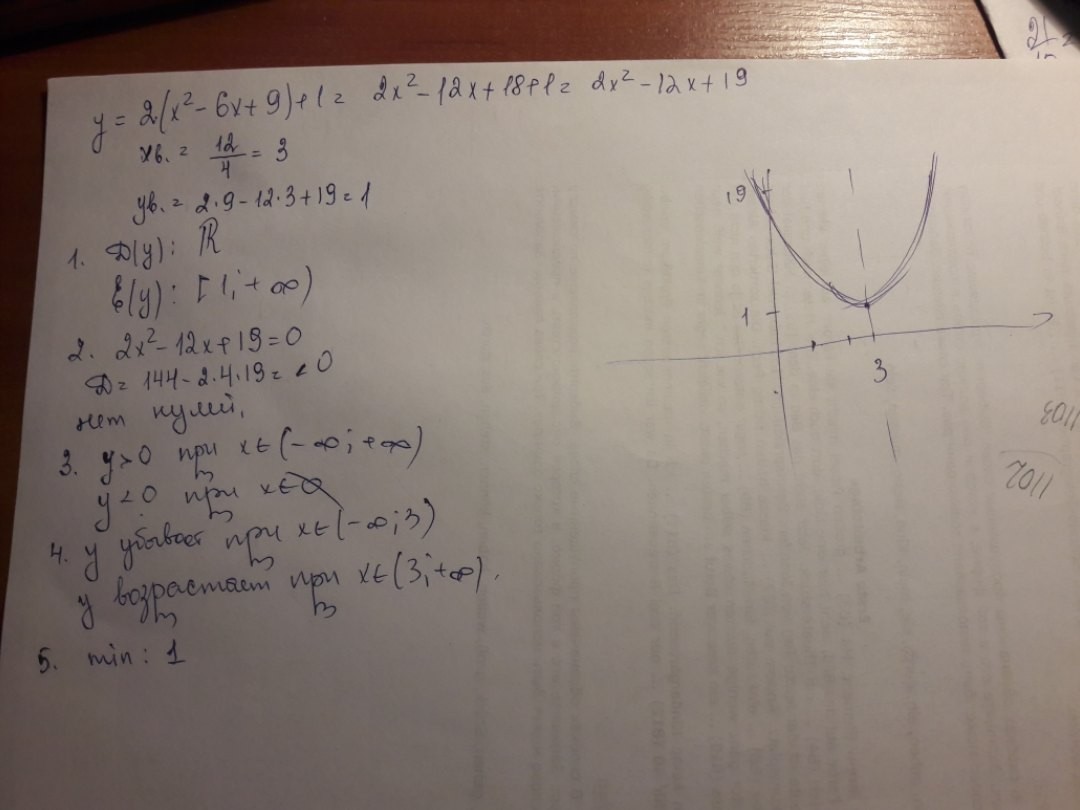 y = 2(x² - 6x + 9) + 1 = 2x² - 12x + 18 + 1 = 2x² - 12x + 19
xв. = 12/4 = 3
yв. = 2·9 - 12·3 + 19 = 1
1. D(y): ℝ
E(y): [1; +∞)
2. 2x² - 12x + 19 = 0
D = 144 - 2·4·19 = < 0
нет нулей.
3. y > 0 при x ∈ (-∞; +∞)
y < 0 при x ∈ ∅
4. y убывает при x ∈ (-∞; 3)
y возрастает при x ∈ (3; +∞).
5. min: 1
19
1
3
21
1103
1102